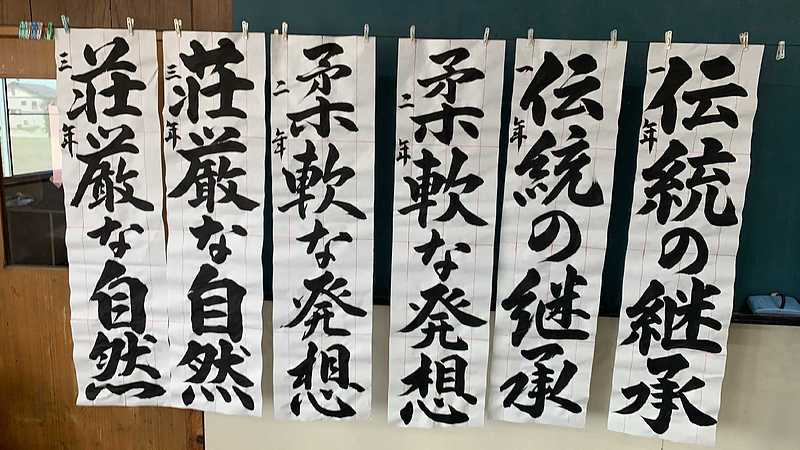 伝統の継承
一年
伝統の継承
一年
柔軟な発想
二年
柔軟な発想
二年
荘厳な自然
三年
荘厳な自然
三年